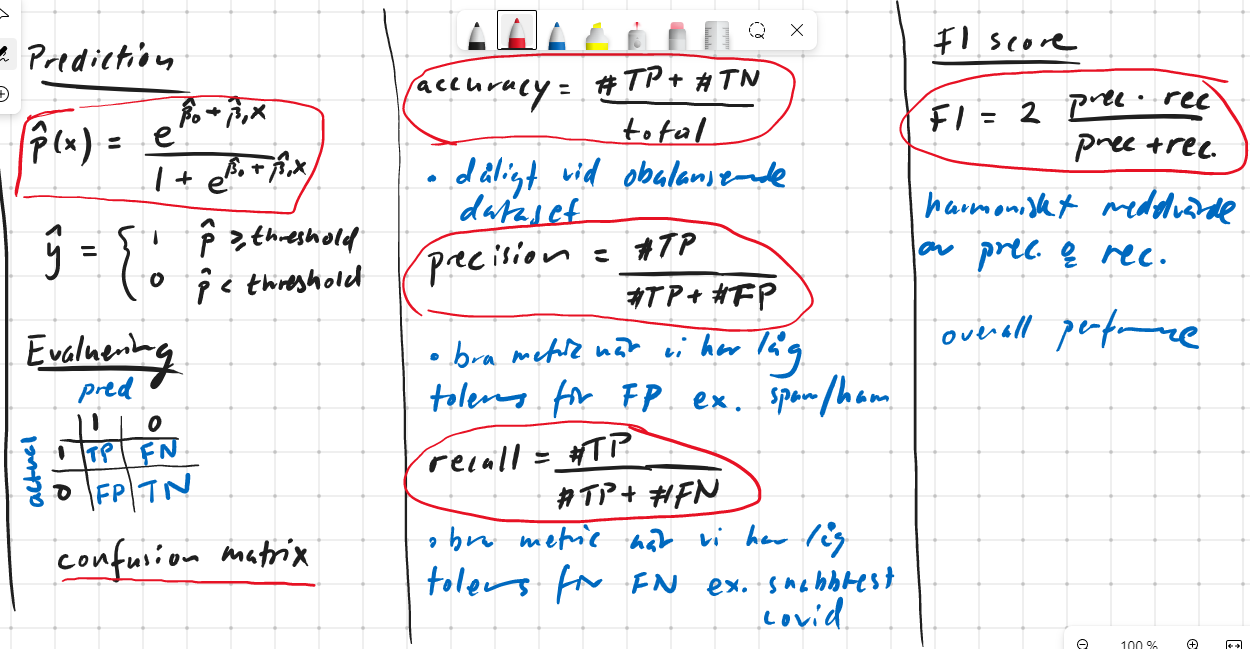 Prediction
p̂(x) = e^(β̂₀ + β̂₁x) / (1 + e^(β̂₀ + β̂₁x))
ŷ = { 1 p̂ ≥ threshold
0 p̂ < threshold
Evaluering
pred
1 0
actual 1 TP FN
0 FP TN
confusion matrix
accuracy = #TP + #TN / total
• dåligt vid obalanserade
dataset
precision = #TP / #TP + #FP
• bra metric när vi har låg
tolerans för FP ex. spam/ham
recall = #TP / #TP + #FN
• bra metric när vi har låg
tolerans för FN ex. snabbtest
covid
F1 score
F1 = 2 prec · rec / prec + rec.
harmoniskt medelvärde
av prec. & rec.
overall performance
100 %